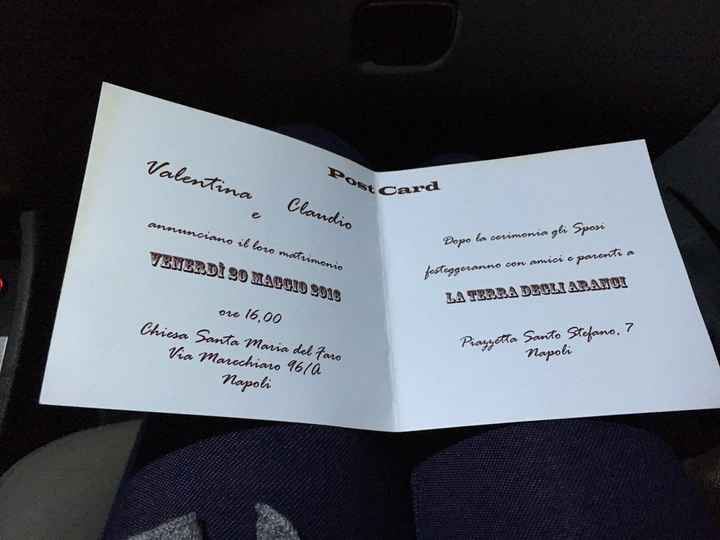 Post Card
Valentina
e Claudio
annunciano il loro matrimonio
VENERDÌ 20 MAGGIO 2016
ore 16,00
Chiesa Santa Maria del Faro
Via Marechiaro 96/A
Napoli
Dopo la cerimonia gli Sposi
festeggeranno con amici e parenti a
LA TERRA DEGLI ARANCI
Piazzetta Santo Stefano, 7
Napoli